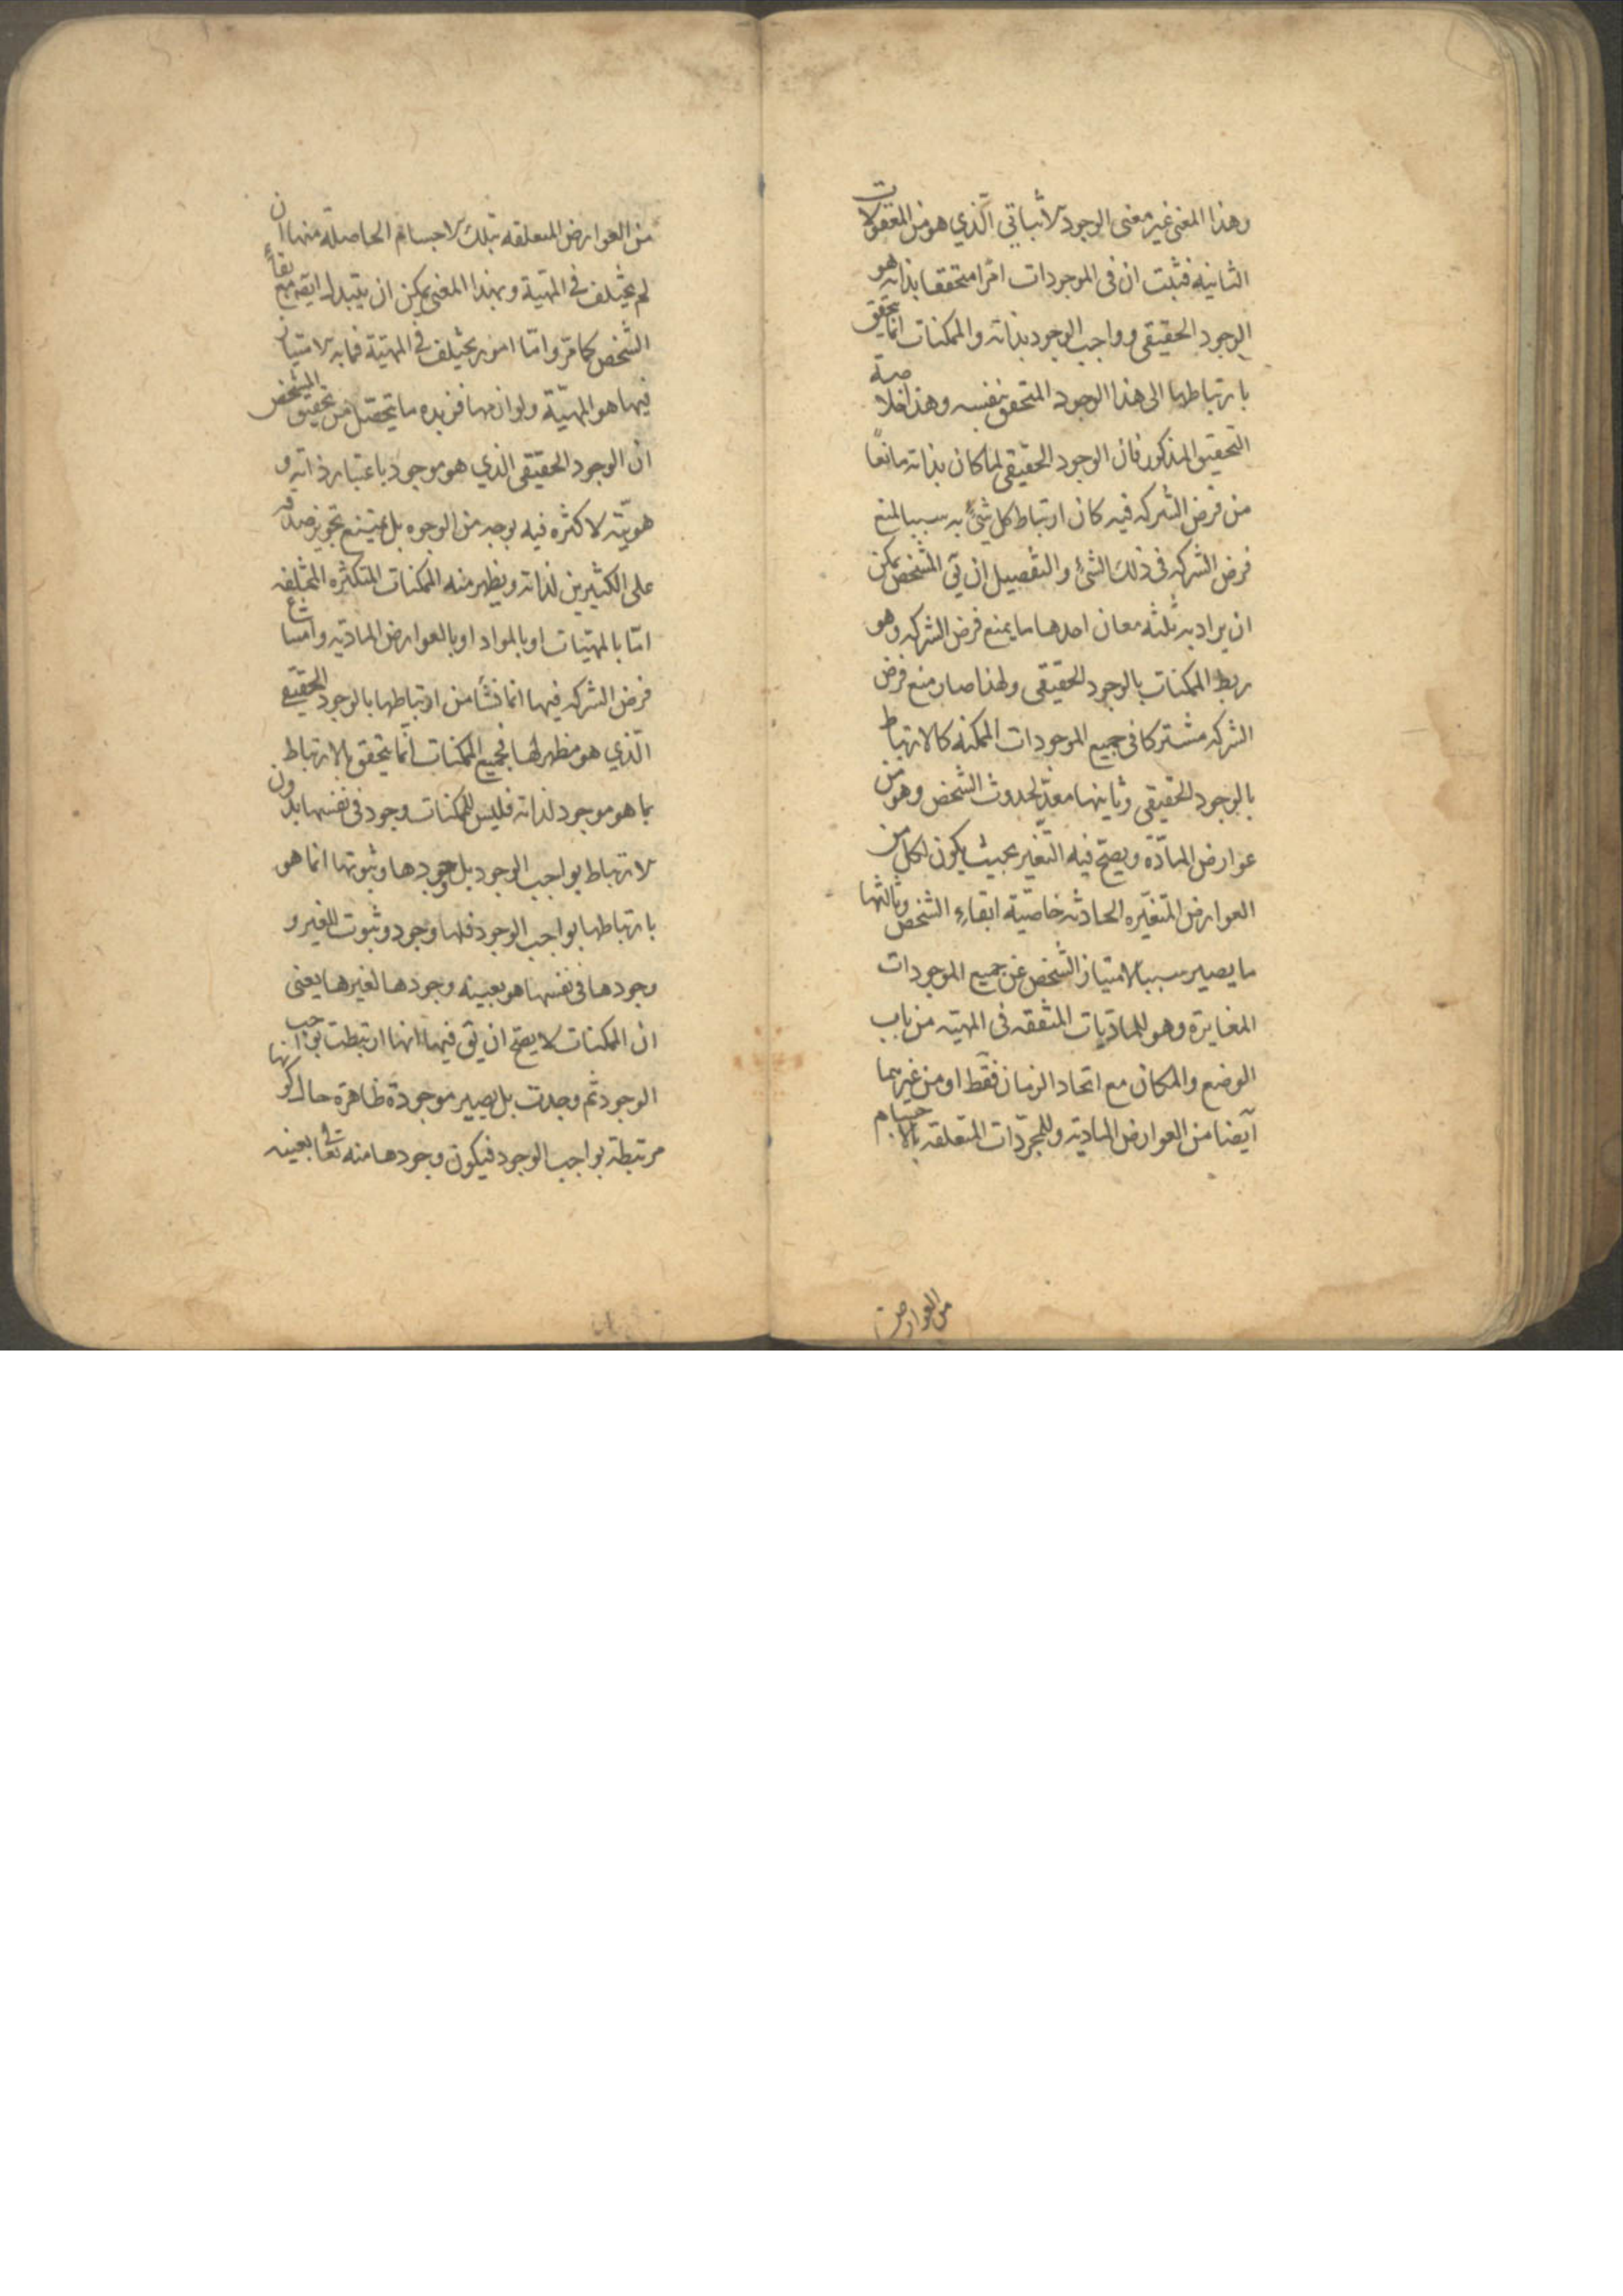 وهذا المعنى غير معنى الوجود الاثباتي الّذي هو من المعقولات
الثانيه فثبت ان فى الموجودات امرا متحققا بذاته هو
الوجود الحقيقى وواجب الوجود بذاته والممكنات انما يتحقق
بارتباطها الى هذا الوجود المتحقق بنفسه وهذا خلاصة
التحقيق المذكور فان الوجود الحقيقى لما كان بذاته مانعًا
من فرض الشركه فيه كان ارتباط كل شئ به سببا لمنع
فرض الشركه فى ذلك الشئ والتفصيل ان تي الشخص يمكن
ان يراد به ثلثه معان احدها ما يمنع فرض الشركه وهو
ربط الممكنات بالوجود الحقيقى ولهذا صار منع فرض
الشركه مشتركا فى جميع الموجودات الممكنه كالارتباط
بالوجود الحقيقى وثانيها معدّ لحدوث الشخص وهو من
عوارض المادّة ويصحّ فيه التغير بحيث يكون لكل من
العوارض المتغيّره الحادثه خاصّية ابقاء الشخص وثالثها
ما يصير سببا لامتياز الشخص عن جميع الموجودات
المغايرة وهو للماديّات المتفقه فى المهيّه من باب
الوضع والمكان مع اتحاد الزمان فقط او من غيرهما
ايضا من العوارض الماديّه وللمجرّدات المتعلقه بالاجسام
من العوارض
من العوارض المتعلقه بتلك الاجسام الحاصلة منها ان
لم يختلف فى المهيّة وبهذا المعنى يمكن ان يتبدل ايضا مع بقاء
الشخص كما مرّ وامّا امور يختلف فى المهيّة فما به الامتياز
فيها هو المهيّة ولوازمها فزبده ما يتحصّل من تحقيق الشخص
ان الوجود الحقيقى الذي هو موجود باعتبار ذاته و
هويّته لا كثره فيه بوجه من الوجوه بل يمتنع تجويز صدقه
على الكثيرين لذاته ويظهر منه الممكنات المتكثره المختلفه
امّا بالمهيّات او بالمواد او بالعوارض الماديّه وامتناع
فرض الشركه فيها انما نشا من ارتباطها بالوجود الحقيقى
الّذي هو مظهر لها فجميع الممكنات انما يتحقق بالارتباط
بما هو موجود لذاته فليس للممكنات وجود فى نفسها بدون
الارتباط بواجب الوجود بل وجودها وثبوتها انما هو
بارتباطها بواجب الوجود فلها وجود وثبوت للغير و
وجودها فى نفسها هو بعينه وجودها لغيرها يعنى
ان الممكنات لا يصحّ ان يق فيها انها ارتبطت بواجب
الوجود ثم وجدت بل يصير موجودة ظاهرة حال كونها
مرتبطة بواجب الوجود فيكون وجودها منه تعالى بعينه